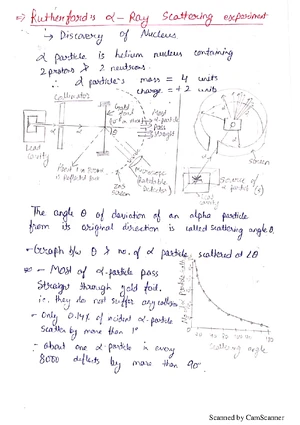 ⇒ Rutherford's α-Ray Scattering experiment
↳ Discovery of Nucleus.
α particle is helium nucleus containing
2 protons & 2 neutrons.
∴ α particle's mass = 4 units
charge = +2 units
Collimator
Gold
foil
Most
α-particle
Pass
straight
Lead
cavity
θ
Microscope
(Rotatable
Detector)
ZnS
screen
screen
Source of
α particle
Lead
cavity
The angle θ of deviation of an alpha particle
from its original direction is called scattering angle θ.
- Graph b/w θ & no. of α particle scattered at ∠θ
- Most of α-particle pass
straight through gold foil.
i.e. they do not suffer any collision
- Only 0.14% of incident α-particle
scatter by more than 1°
- about one α-particle in every
8000 deflects by more than 90°
Scattering angle
Scanned by CamScanner